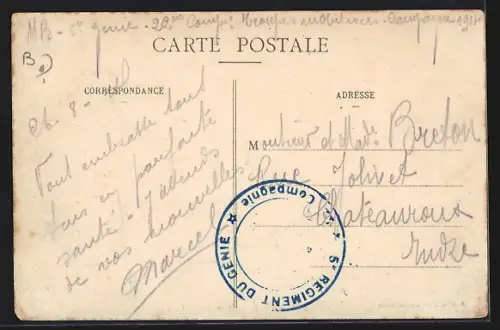 MB - 5e génie - 22me Compie troupes mobilisées - Campagne 1914
CARTE POSTALE
CORRESPONDANCE
ADRESSE
26 - 8 - 
Vous embrasse tous
suis en parfaite
santé - J'attends
de vos nouvelles
Marcel
Monsieur et Made Breton
Rue Jolivet
Châteauroux
Indre
5e REGIMENT DU GENIE ★ Compagnie ★